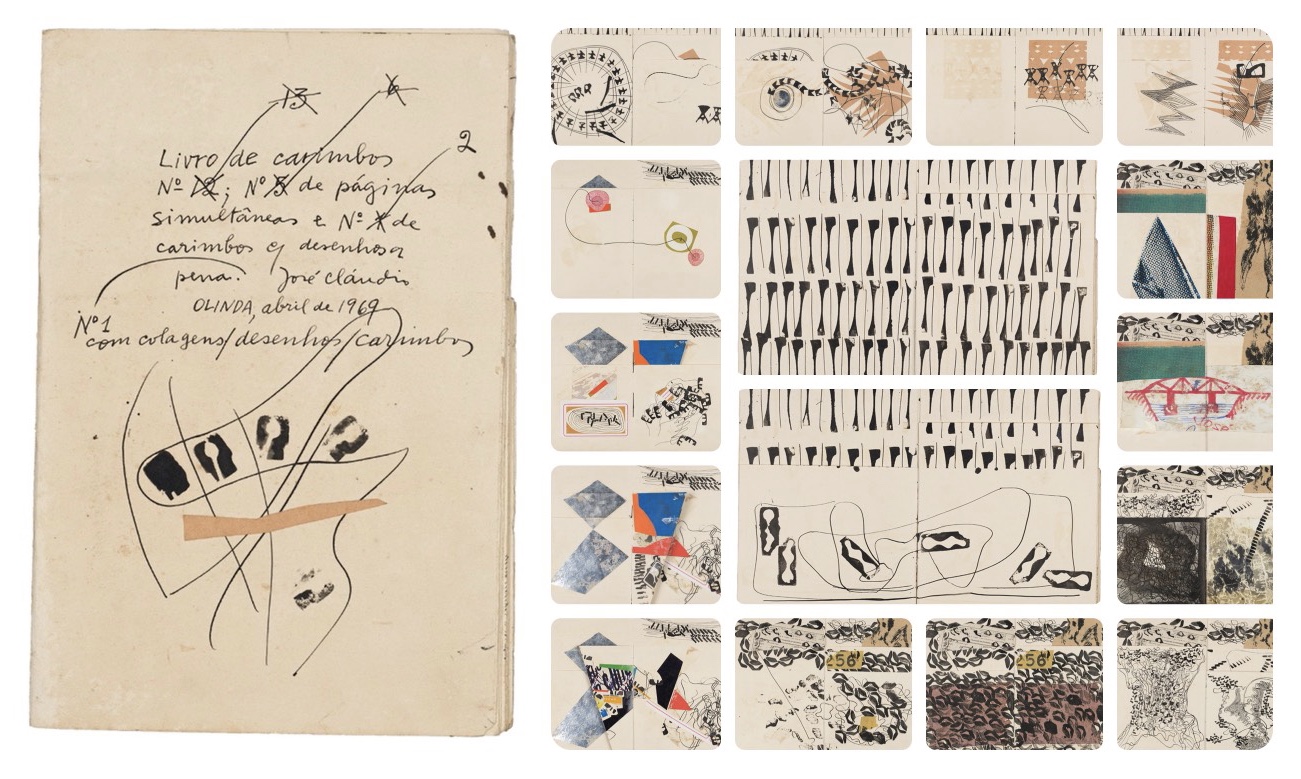 13 6
2
Livro de carimbos
Nº 12; Nº 5 de páginas
simultâneas e Nº de
carimbos e desenhos a
pena. José Cláudio
OLINDA, abril de 1969
Nº 1
com colagens/desenhos/carimbos
256
256